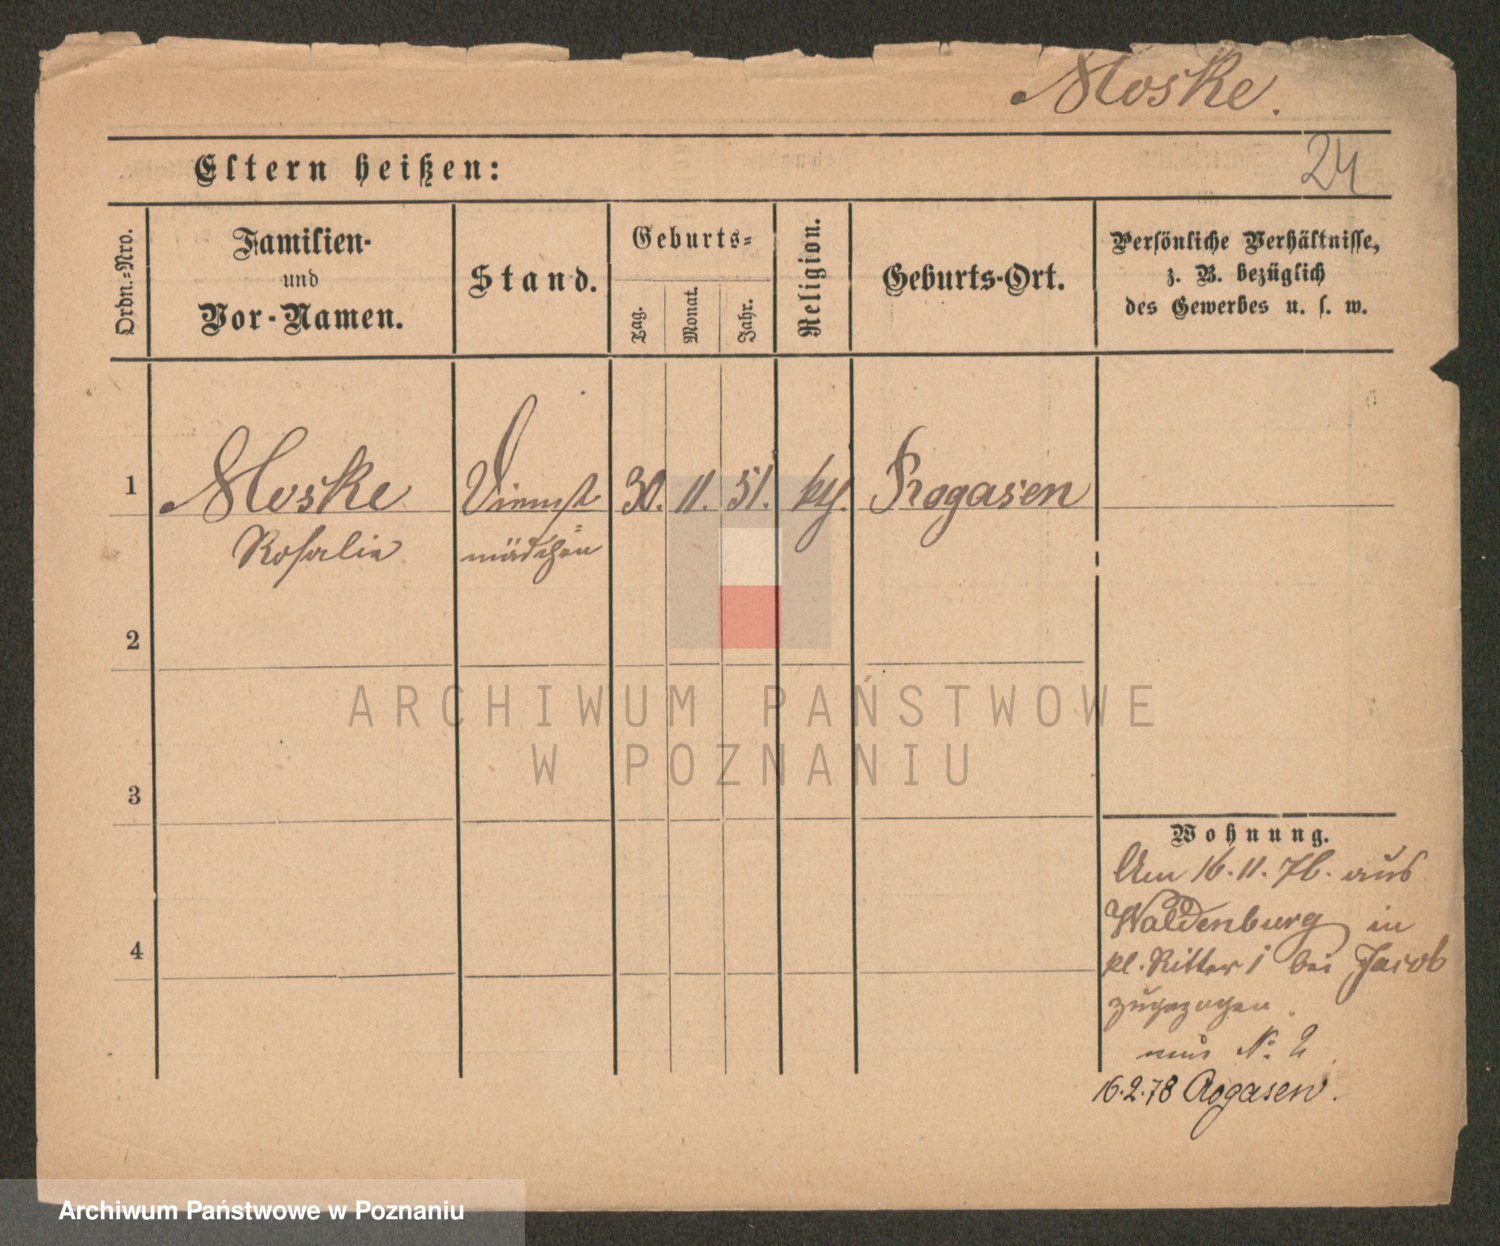 Moske.
24
Eltern heißen:
Ordn.-Nro.
Familien-
und
Vor-Namen.
Stand.
Geburts-
Tag.
Monat.
Jahr.
Religion.
Geburts-Ort.
Persönliche Verhältnisse,
z. B. bezüglich
des Gewerbes u. s. w.
1
Moske
Dienst
30. 11. 51.
Rogasen
Rosalie
mädchen
2
ARCHIWUM PAŃSTWOWE
W POZNANIU
3
Wohnung.
Am 16. 11. 76. aus
Waldenburg in
kl. Ritter 1 bei Jacob
zugezogen.
aus No. 2
4
16.2.78 Rogasen.
Archiwum Państwowe w Poznaniu